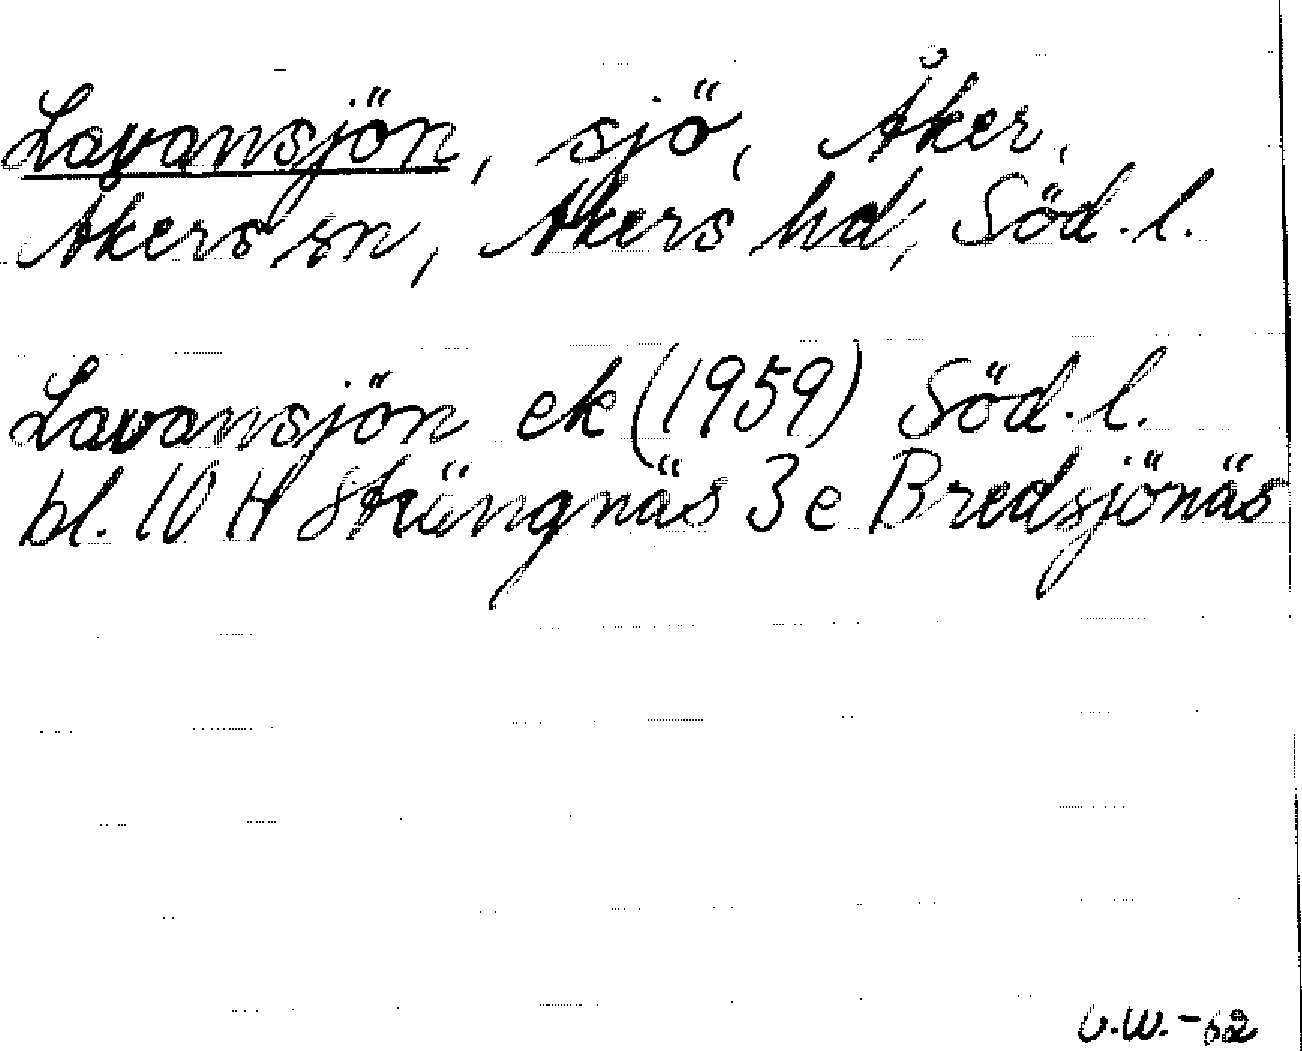 Lavansjön, sjö, Åker,
Åkers sn, Åkers hd, Söd. l.
Lavansjön ek (1959) Söd. l.
bl. 10 H Strängnäs 3 e Bredsjönäs